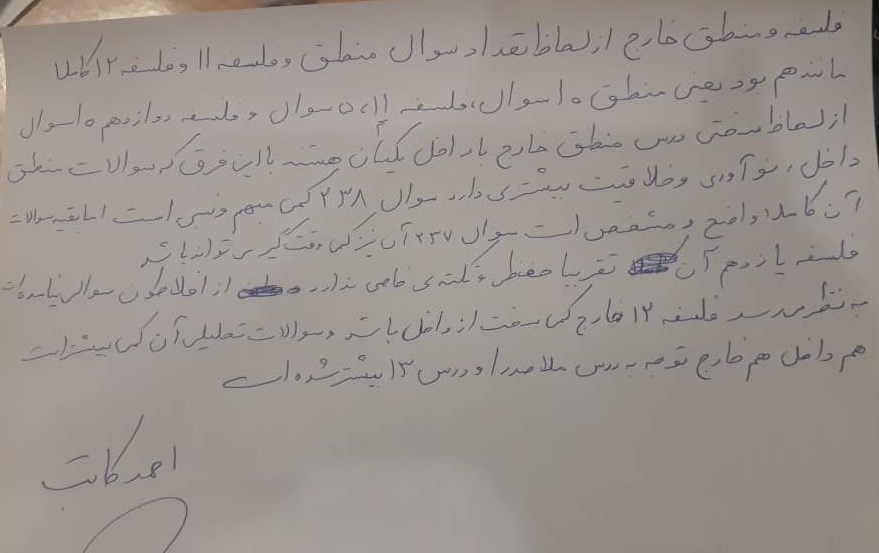 فلسفه و منطق خارج از لحاظ تعداد سوال منطق و فلسفه ۱۱ و فلسفه ۱۲ کاملا
مانند هم بود یعنی منطق ۱۰ سوال، فلسفه ۱۱، ۵ سوال و فلسفه دوازدهم ۱۰ سوال
از لحاظ سختی درس منطق خارج با داخل یکسان هستند با این فرق که سوالات منطق
داخل، نوآوری و خلاقیت بیشتری دارد سوال ۲۳۸ کمی مبهم و نسبی است اما بقیه سوالات
آن کاملا واضح و مشخص است سوال ۲۳۷ آن نیز کمی وقت گیر می تواند باشد
فلسفه یازدهم آن تقریبا حفظی و نکته ی خاصی ندارد از افلاطون سوالی نیامده است
به نظر می رسد فلسفه ۱۲ خارج کمی سخت از داخل باشد و سوالات تحلیلی آن کمی بیشتر است
هم داخل هم خارج توجه به درس ملاصدرا و درس ۱۳ بیشتر شده است
احمد کاتب